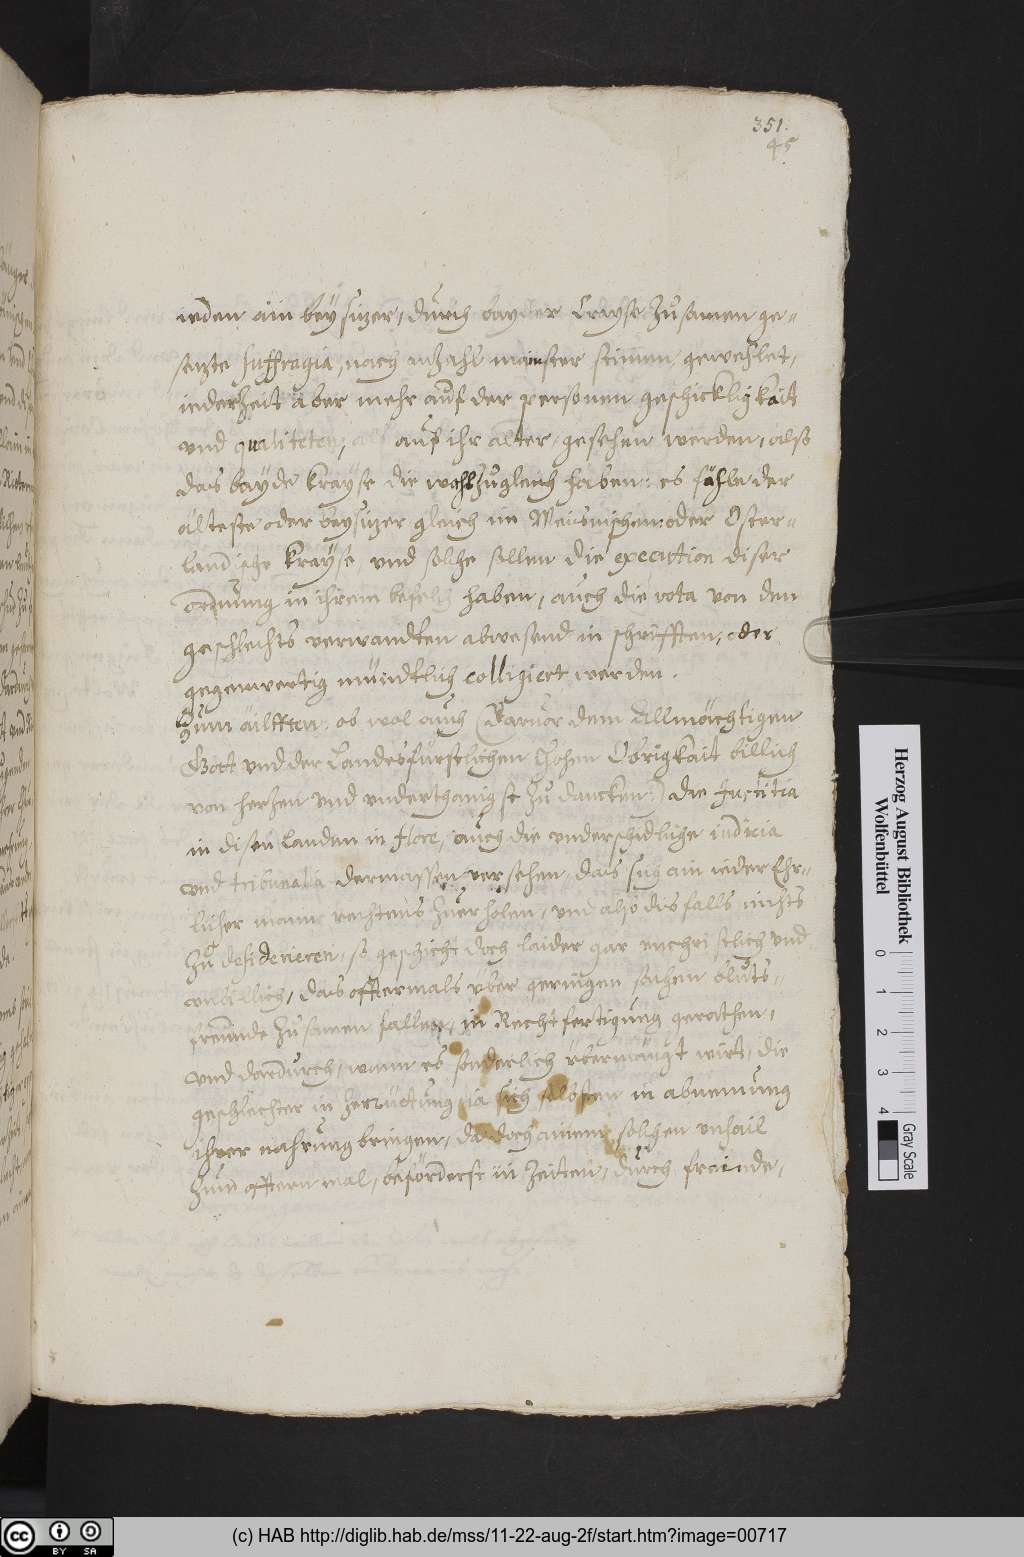 351.
45
ieden ain beysizer, durch bayder Crayse zusamen ge-
sezte suffragia, nach anzahl mainster stimen gewehlet,
iederheit aber mehr auf der personen geschickligkait
vnd qualiteten, als auf ihr alter, gesehen werden, also
das bayde Krayse die wahl zugleich haben: es fahle der
älteste oder beysizer gleich im Meisnischen oder Oster-
landische Krayse vnd solche sollen die execution diser
ordnung in ihrem befelch haben, auch die vota von den
geschlechts verwandten abwesend in schrifften, oder
gegenwertig mündtlich colligiert werden.
Zum ailfften: ob wol auch (daruor dem Allmächtigen
Gott vnd der Landesfürstlichen hohen Obrigkait billich
von herzen vnd vnderthanigst zu dancken:) die Justitia
in disen landen in flore, auch die vnderschidliche iudicia
vnd tribunalia dermassen versehen, das sich ain ieder Ehr-
licher mann rechtens zuerholen, vnd also disfalls nichts
zu desiderieren, so geschicht doch laider gar vnchristlich vnd
vnbillich, das offtermals vber geringen sachen bluts-
freunde zusamen fallen, in Rechtfertigung gerathen,
vnd dardurch, wann es sonderlich vbermängt wirt, die
geschlechter in zerrüttung ia sich selbsten in abnemung
ihrer nahrung bringen, da doch ainem solchen vnhail
zum offtern mal, beforderst in Zeiten, durch freunde,
Herzog August Bibliothek
Wolfenbüttel
0 1 2 3 4
Gray Scale
cc BY SA
(c) HAB http://diglib.hab.de/mss/11-22-aug-2f/start.htm?image=00717